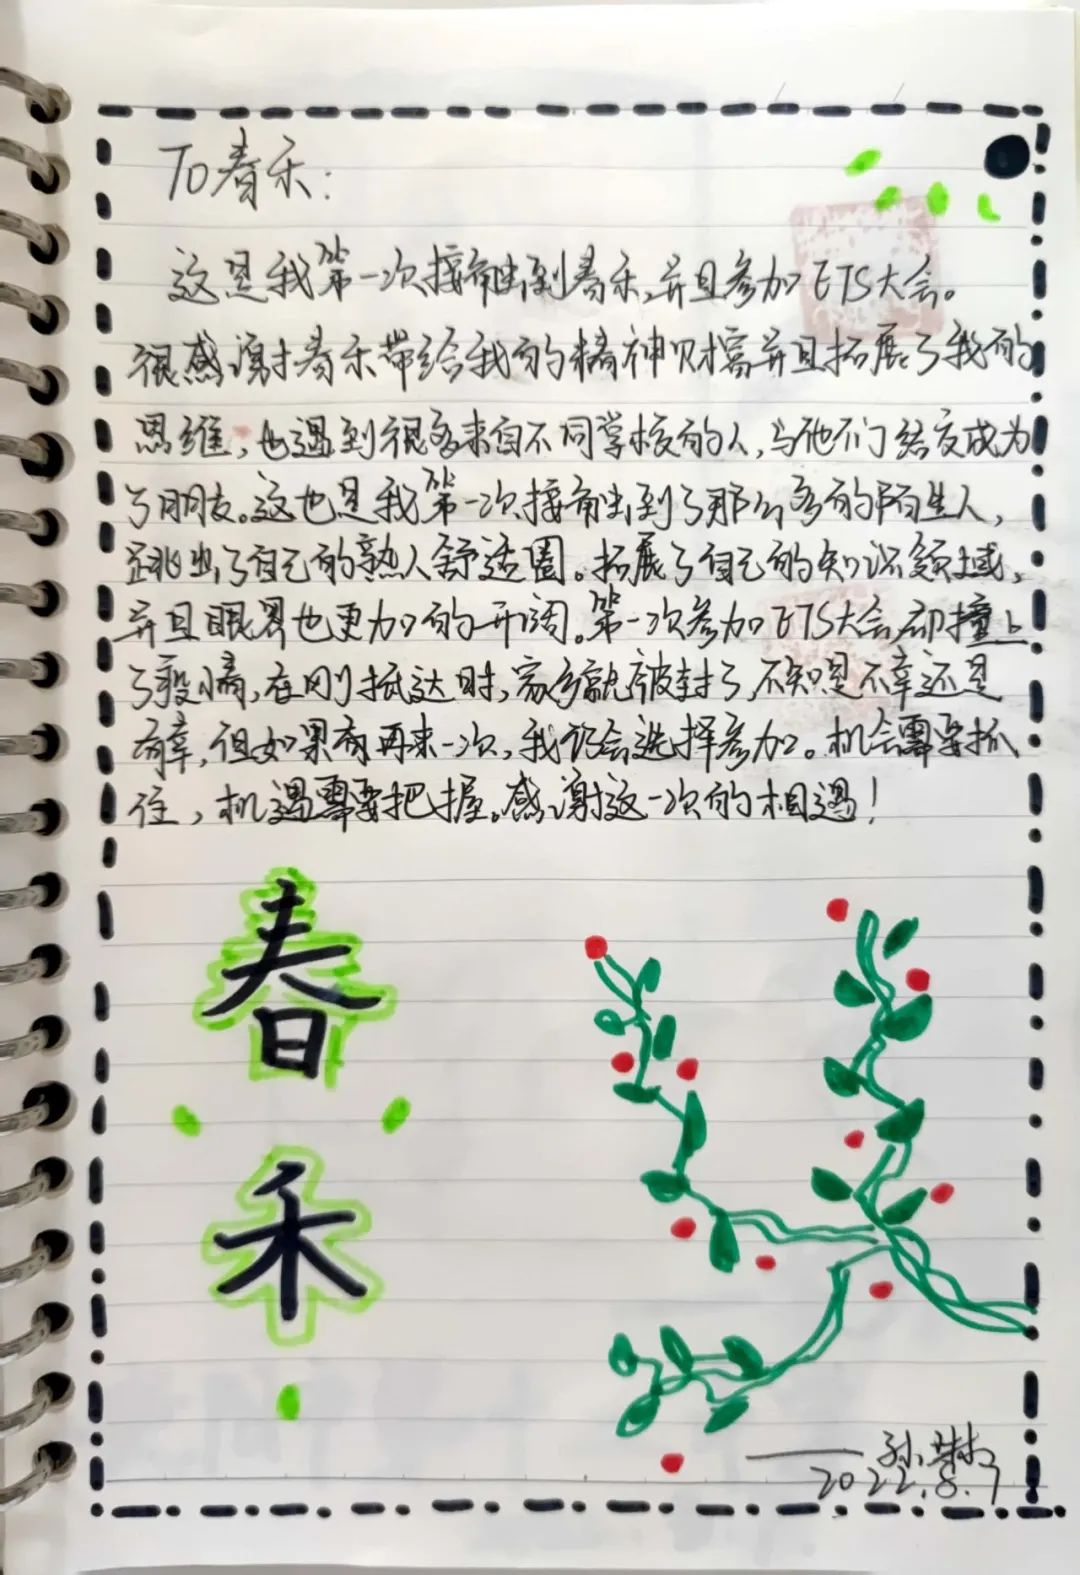 To春禾：
这是我第一次接触到春禾，并且参加ETS大会。
很感谢春禾带给我的精神财富并且拓展了我的
思维，也遇到很多来自不同学校的人，与他们结交成为
了朋友。这也是我第一次接触到了那么多的陌生人，
跳出了自己的熟人舒适圈。拓展了自己的知识领域，
并且眼界也更加的开阔。第一次参加ETS大会，却撞上
了疫情，在刚抵达时，家乡就被封了，不知是不幸还是
有幸，但如果有再来一次，我仍会选择参加。机会需要抓
住，机遇需要把握。感谢这一次的相遇！
春
禾
——孙
2022.8.7